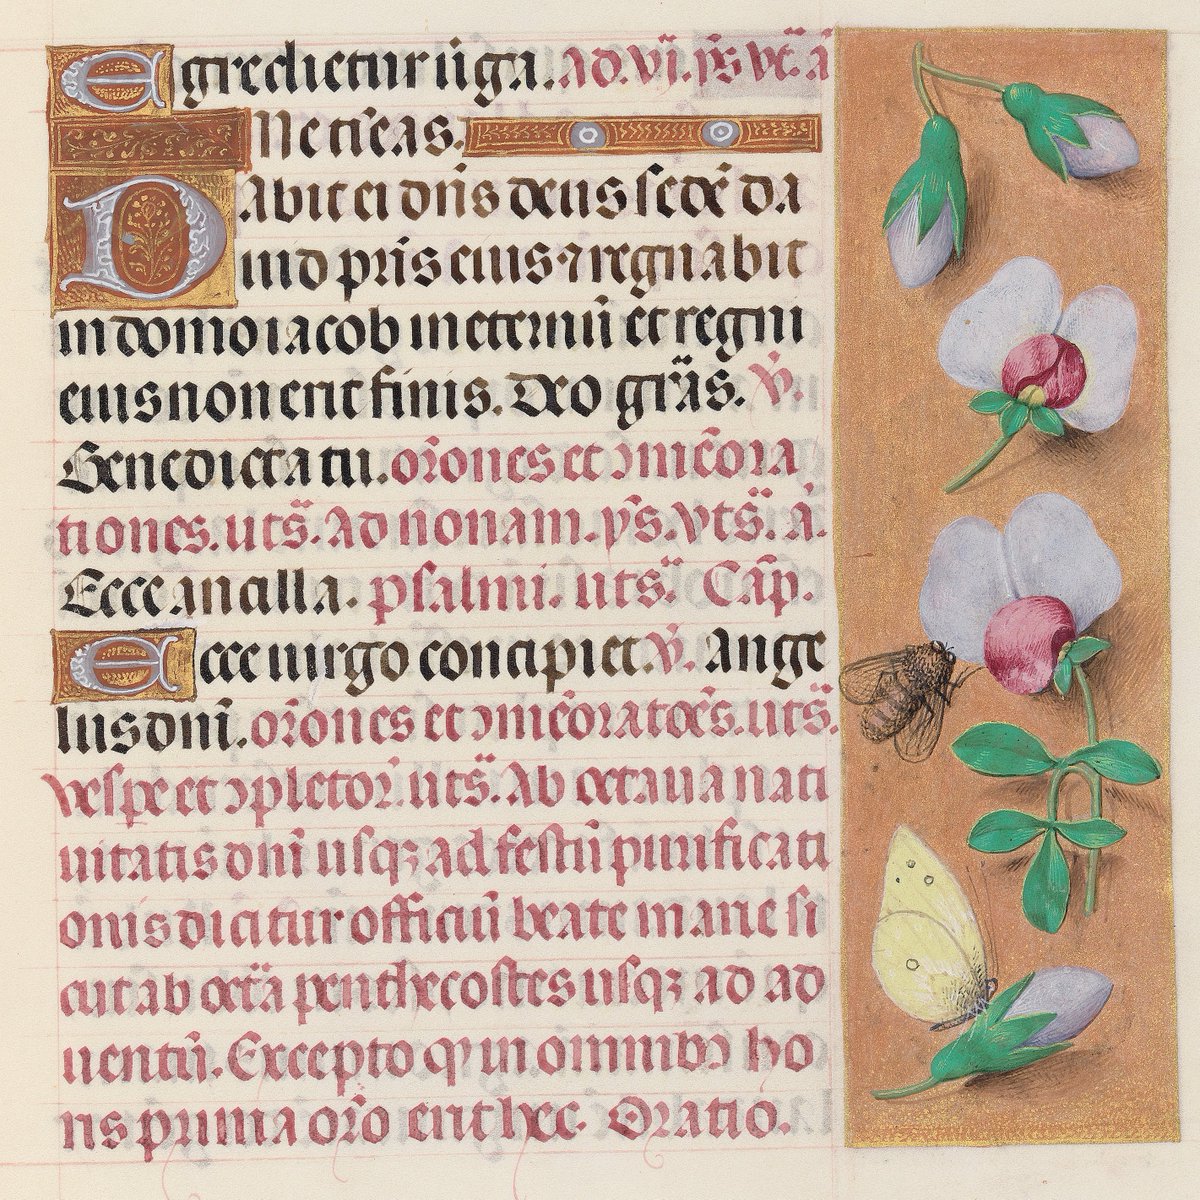 Egredietur uirga. ad. vi. ps̄ vt. ā
Ne timeas.
Dabit ei dn̄s deus sedē da
uid pr̄is eius ⁊ regnabit
in domo iacob in eternū et regni
eius non erit finis. Deo gr̄as. V̇.
Benedicta tu. or̄ones et ↄmēora
tiones. uts̄. Ad nonam. ps̄. vts̄. ā.
Ecce ancilla. psalmi. uts̄. Cap̄.
Ecce uirgo concipiet. V̇. Ange
lus dn̄i. or̄ones et ↄmēoratōēs. uts̄.
vesp̄e et ↄpletor̄. uts̄. Ab octaua nati
uitatis dn̄i usqꝫ ad festū purificati
onis dicitur officiū beate marie si
cut ab octā penthecostes usqꝫ ad ad
uentū. Excepto ꝙ in omnibꝫ ho
ris prima or̄o erit hec. Oratio.